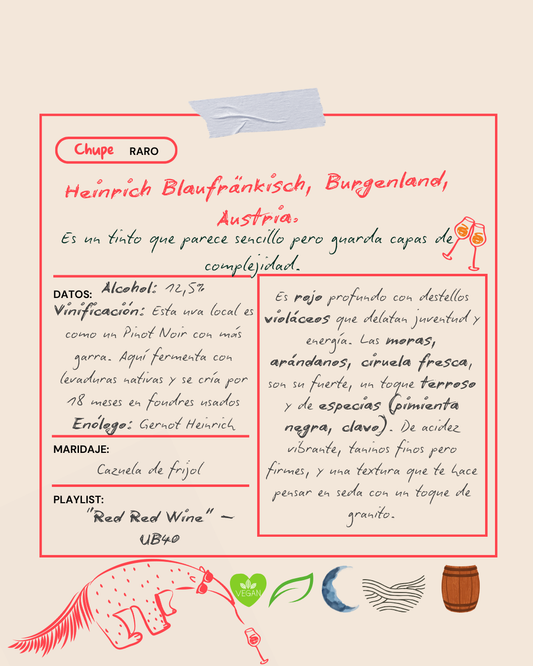 Chupe RARO
Heinrich Blaufränkisch, Burgenland,
Austria:
Es un tinto que parece sencillo pero guarda capas de
complejidad.
DATOS: Alcohol: 12,5%
Vinificación: Esta uva local es
como un Pinot Noir con más
garra. Aquí fermenta con
levaduras nativas y se cría por
18 meses en foudres usados
Enólogo: Gernot Heinrich
MARIDAJE:
Cazuela de frijol
PLAYLIST:
"Red Red Wine" –
UB40
Es rojo profundo con destellos
violáceos que delatan juventud y
energía. Las moras,
arándanos, ciruela fresca,
son su fuerte, un toque terroso
y de especias (pimienta
negra, clavo). De acidez
vibrante, taninos finos pero
firmes, y una textura que te hace
pensar en seda con un toque de
granito.
VEGAN